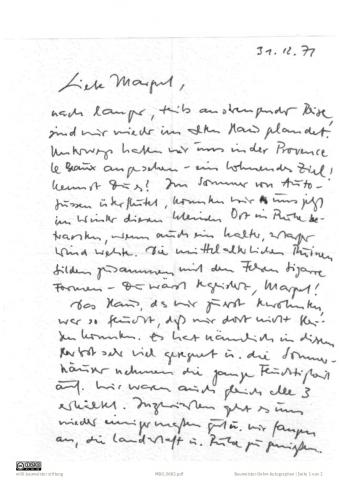 31.12.71
Liebe Margot,
nach langer, teils anstrengender Reise,
sind wir wieder im alten Haus gelandet.
Unterwegs hatten wir uns in der Provence
le Baux angesehen – ein lohnendes Ziel!
Kennst Du es? Im Sommer von Auto-
bussen überflutet, konnten wir uns jetzt
im Winter diesen kleinen Ort in Ruhe be-
trachten, wenn auch ein kalter, scharfer
Wind wehte. Die mittelalterlichen Ruinen
bilden zusammen mit den Felsen bizarre
Formen – Du wärst begeistert, Margot!
Das Haus, das wir zuerst bewohnten,
war so feucht, daß wir dort nicht blei-
ben konnten. Es hat nämlich in diesem
Herbst sehr viel geregnet u. die Sommer-
häuser nehmen die ganze Feuchtigkeit
auf. Wir waren auch gleich alle 3
erkältet. Inzwischen geht es uns
wieder einigermaßen gut u. wir fangen
an, die Landschaft u. Ruhe zu genießen.
willi baumeister stiftung
Seite 1 von 2